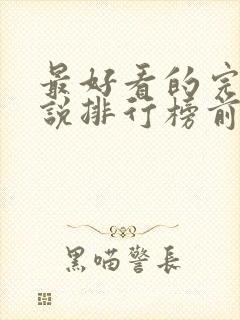 最好看的完
説排行榜前
黑喵警長